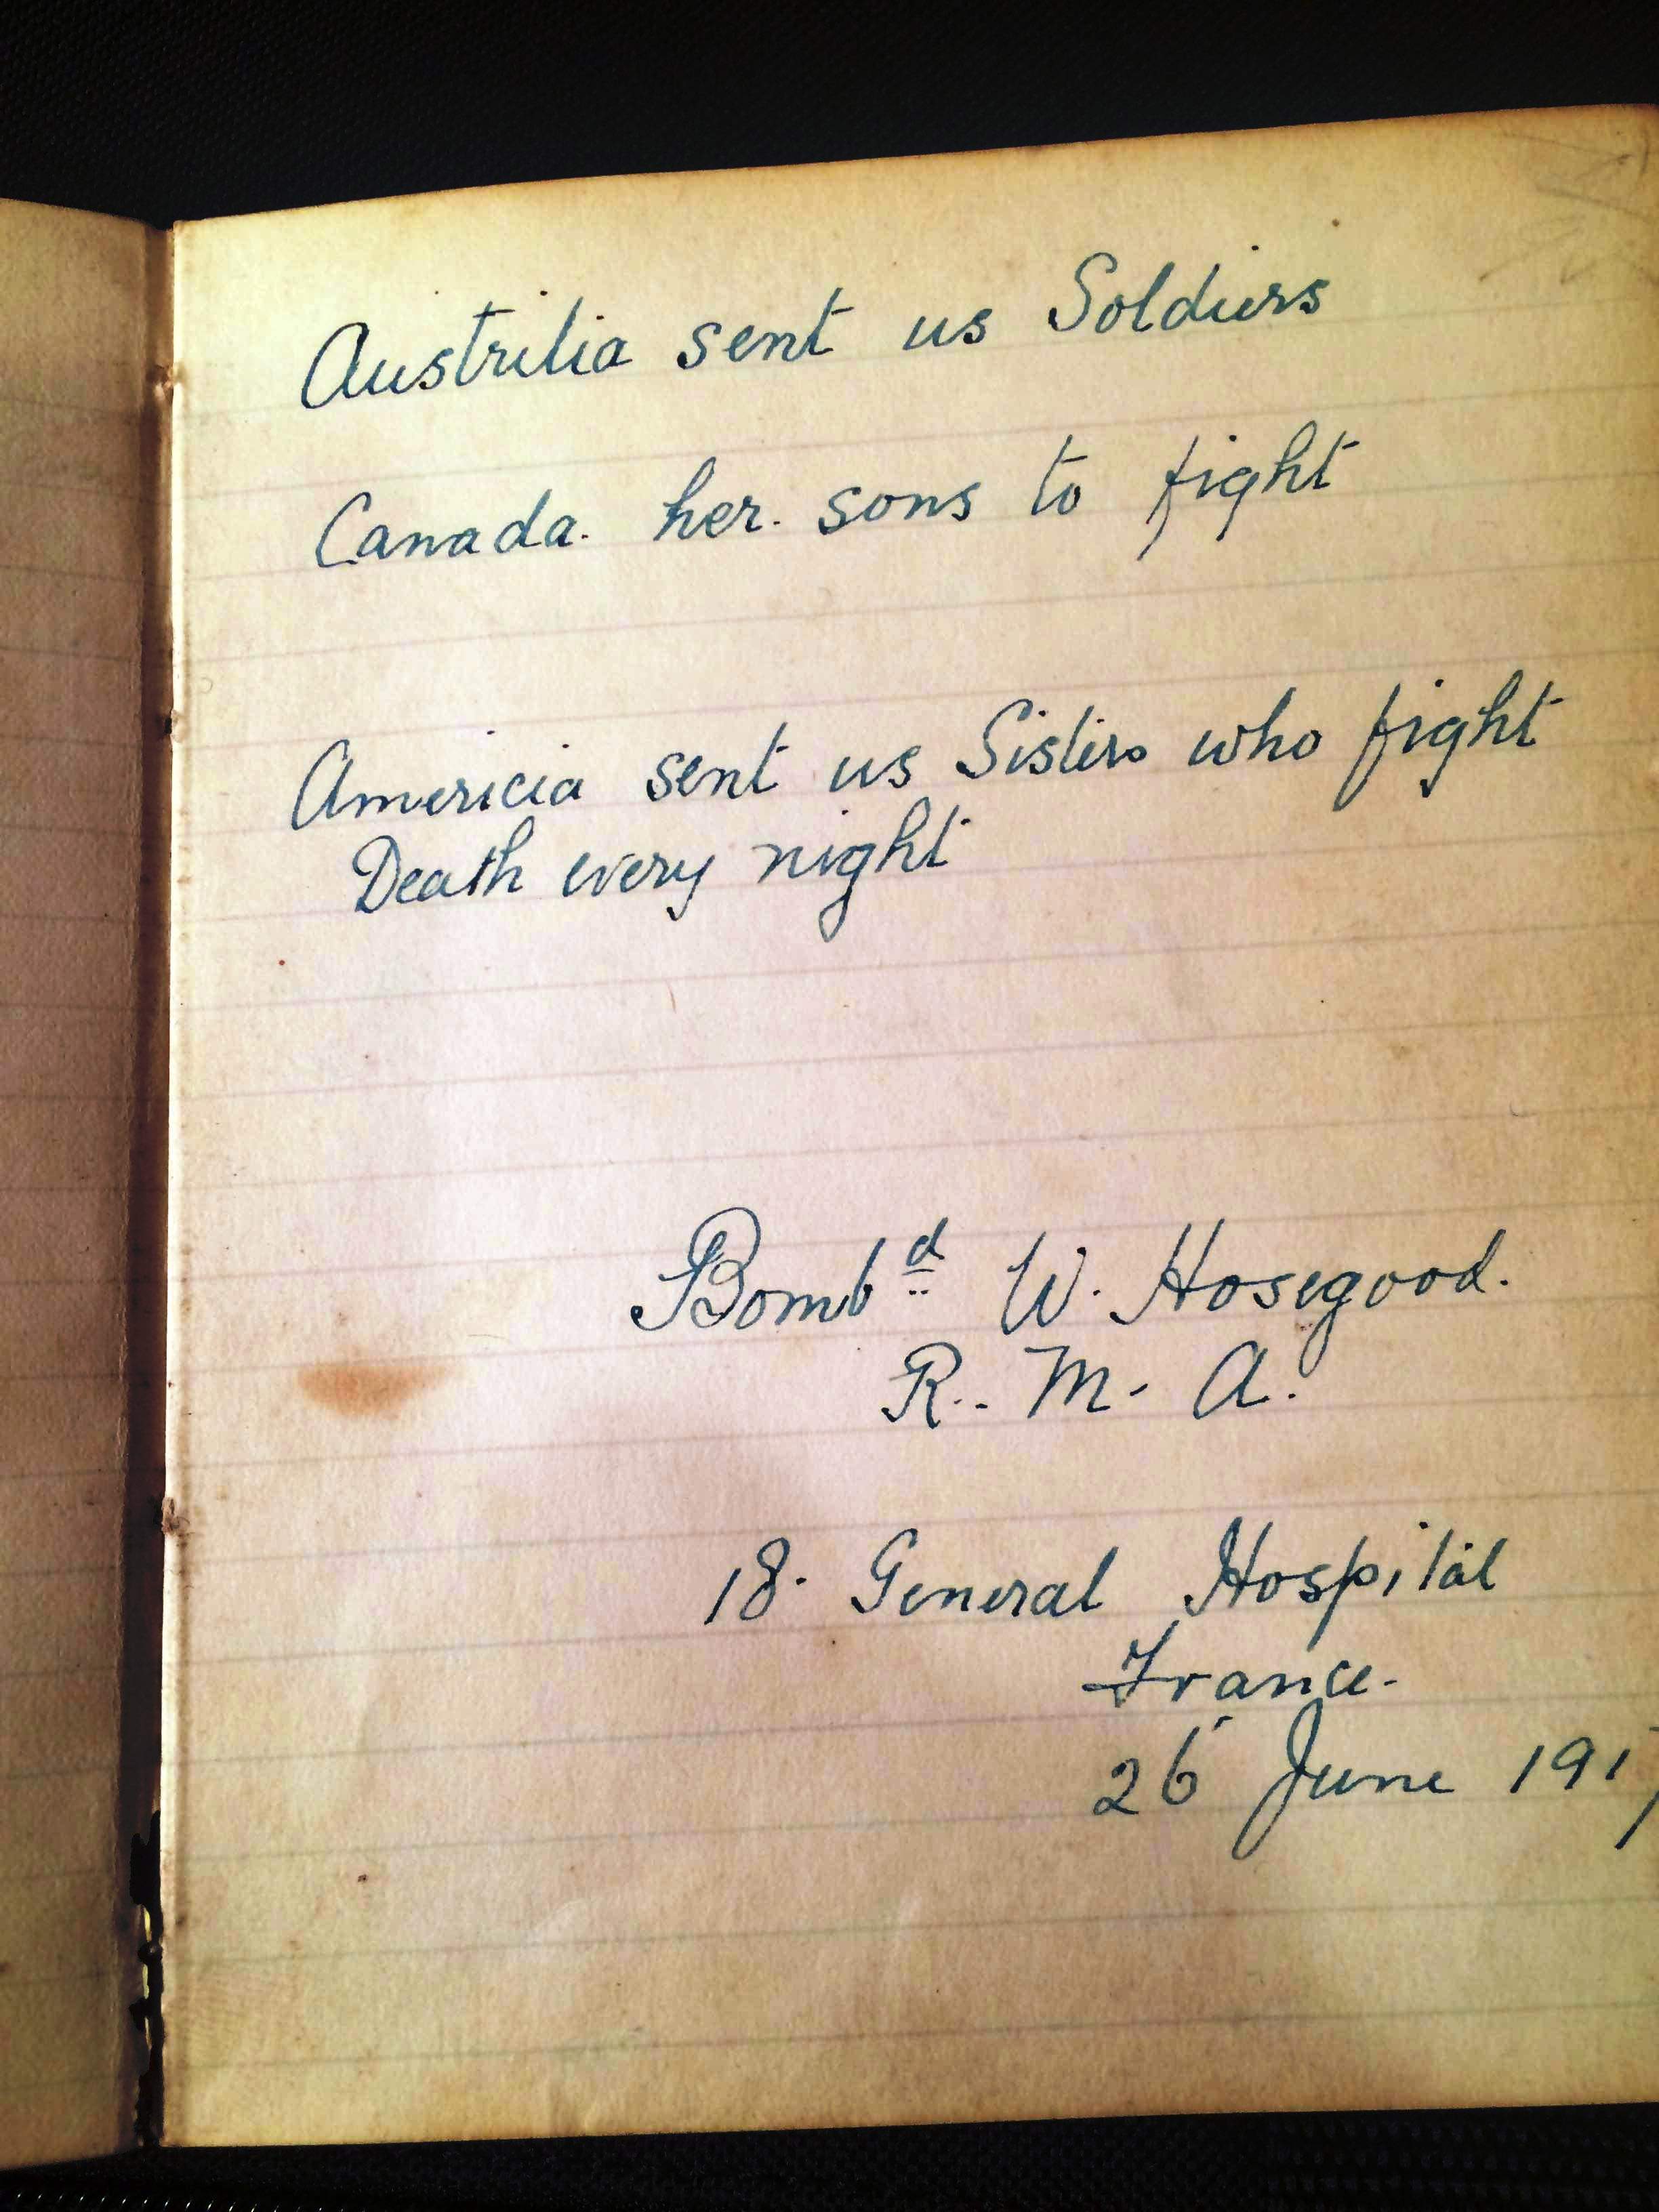 Austrilia sent us Soldiers
Canada. her. sons to fight
Americia sent us Sisters who fight
Death every night
Bombd W. Hosegood.
R.. M. A.
18. General Hospital
France.
26 June 1917